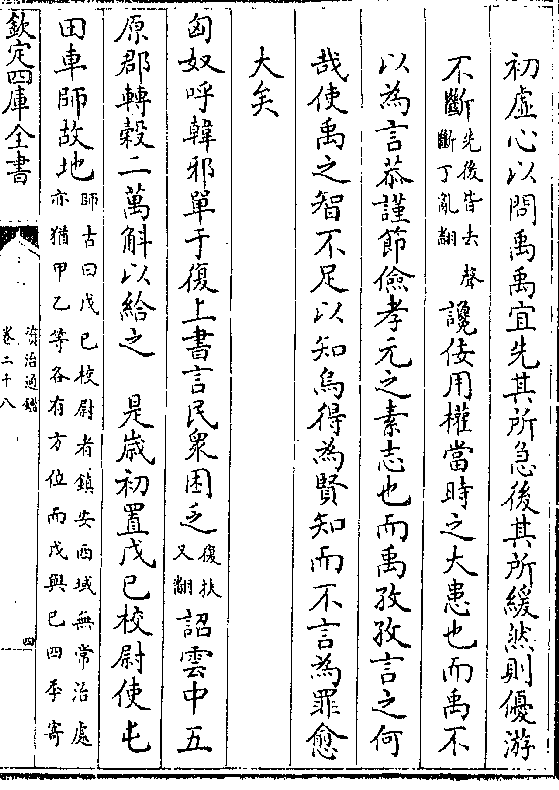 初虛心以問禹禹宜先其所急後其所緩然則優游
不斷先後皆去聲斷丁亂翻讒佞用權當時之大患也而禹不
以為言恭謹節儉孝元之素志也而禹孜孜言之何
哉使禹之智不足以知烏得為賢知而不言為罪愈
大矣
匈奴呼韓邪單于復上書言民衆困乏復扶又翻詔雲中五
原郡轉穀二萬斛以給之 是歲初置戊已校尉使屯
田車師故地師古曰戊已校尉者鎮安西域無常治處亦猶甲乙等各有方位而戊與已四季寄
欽定四庫全書
資治通鑑
卷二十八
四